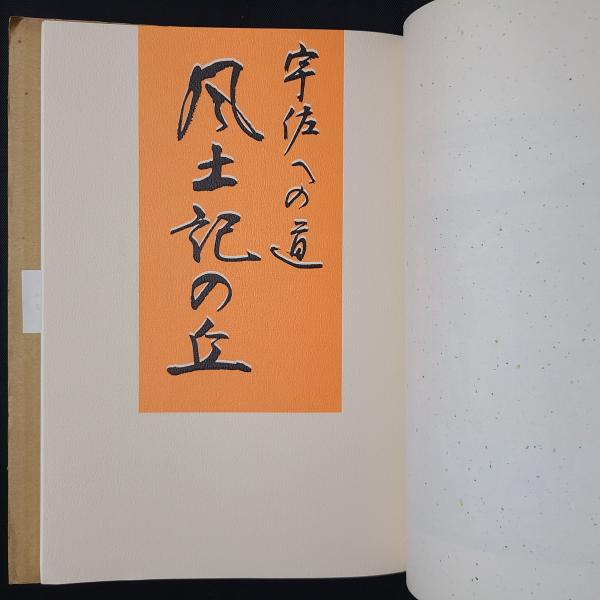 宇佐への道
風土記の丘